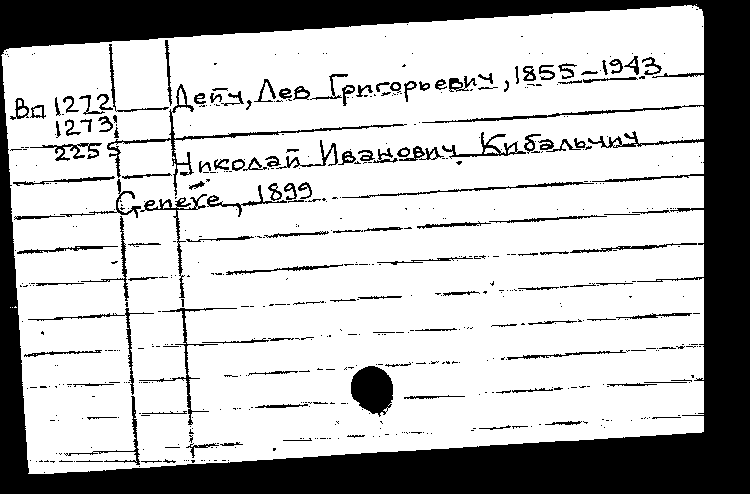 Вп 1272 Дейч, Лев Григорьевич, 1855-1943.
1273
2255 Николай Иванович Кибальчич
Genève, 1899